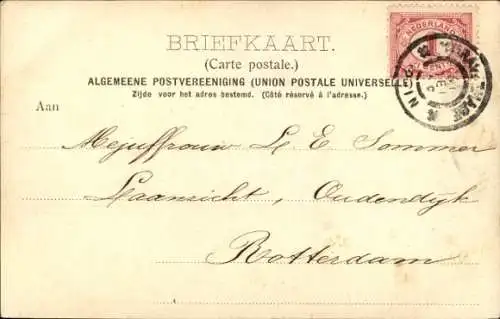 BRIEFKAART.
(Carte postale.)
ALGEMEENE POSTVEREENIGING (UNION POSTALE UNIVERSELLE)
Zijde voor het adres bestemd. (Côté réservé à l'adresse.)
NEDERLAND
Aan
Mejuffrouw L. E Sommer
Laanzicht, Oudendijk
Rotterdam